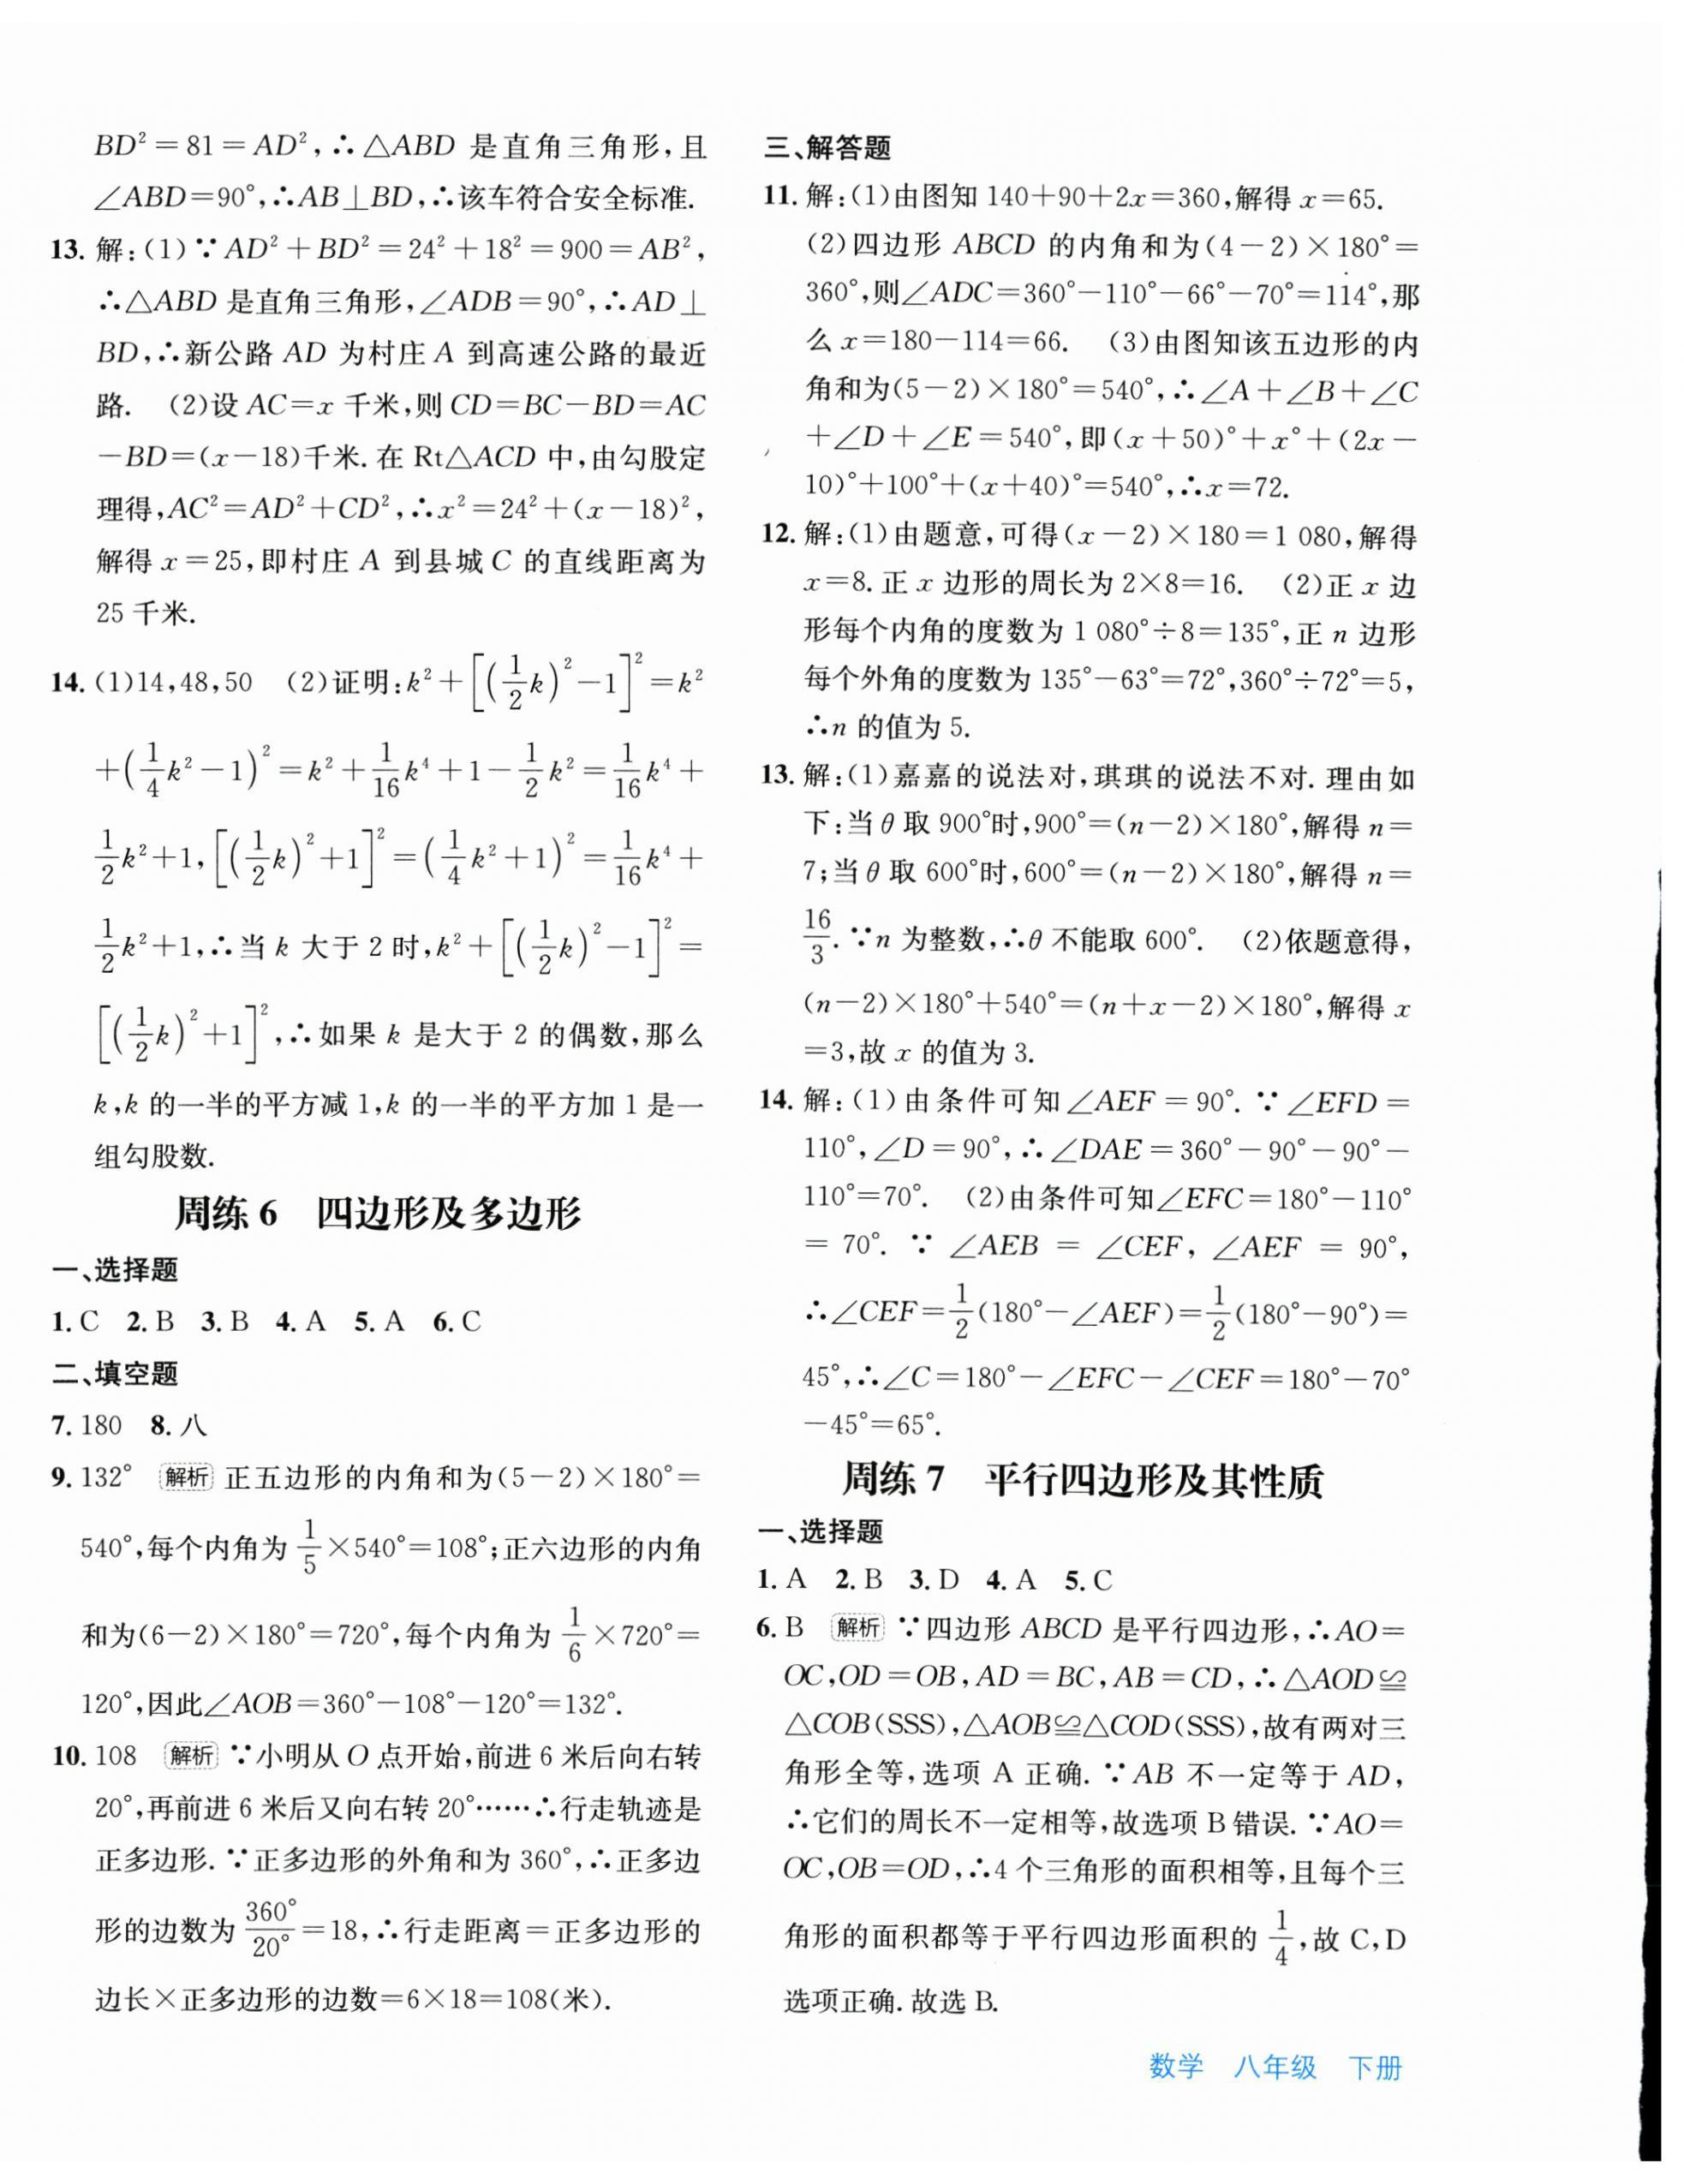 BD²=81=AD²,∴△ABD 是直角三角形,且
∠ABD=90°,∴AB⊥BD,∴该车符合安全标准.
13. 解:(1)∵AD²+BD²=24²+18²=900=AB²,
∴△ABD 是直角三角形,∠ADB=90°,∴AD⊥
BD,∴新公路 AD 为村庄 A 到高速公路的最近
路. (2)设 AC=x 千米,则 CD=BC-BD=AC
-BD=(x-18)千米. 在 Rt△ACD 中,由勾股定
理得,AC²=AD²+CD²,∴x²=24²+(x-18)²,
解得 x=25,即村庄 A 到县城 C 的直线距离为
25 千米.
14. (1)14,48,50 (2)证明:k²+[(1/2k)²-1]²=k²
+(1/4k²-1)²=k²+1/16k⁴+1-1/2k²=1/16k⁴+
1/2k²+1,[(1/2k)²+1]²=(1/4k²+1)²=1/16k⁴+
1/2k²+1,∴当 k 大于 2 时,k²+[(1/2k)²-1]²=
[(1/2k)²+1]²,∴如果 k 是大于 2 的偶数,那么
k,k 的一半的平方减 1,k 的一半的平方加 1 是一
组勾股数.
周练 6 四边形及多边形
一、选择题
1. C 2. B 3. B 4. A 5. A 6. C
二、填空题
7. 180 8. 八
9. 132° 解析 正五边形的内角和为(5-2)×180°=
540°,每个内角为 1/5×540°=108°;正六边形的内角
和为(6-2)×180°=720°,每个内角为 1/6×720°=
120°,因此∠AOB=360°-108°-120°=132°.
10. 108 解析 ∵小明从 O 点开始,前进 6 米后向右转
20°,再前进 6 米后又向右转 20°……∴行走轨迹是
正多边形. ∵正多边形的外角和为 360°,∴正多边
形的边数为 360°/20°=18,∴行走距离=正多边形的
边长×正多边形的边数=6×18=108(米).
三、解答题
11. 解:(1)由图知 140+90+2x=360,解得 x=65.
(2)四边形 ABCD 的内角和为(4-2)×180°=
360°,则∠ADC=360°-110°-66°-70°=114°,那
么 x=180-114=66. (3)由图知该五边形的内
角和为(5-2)×180°=540°,∴∠A+∠B+∠C
+∠D+∠E=540°,即(x+50)°+x°+(2x-
10)°+100°+(x+40)°=540°,∴x=72.
12. 解:(1)由题意,可得(x-2)×180=1 080,解得
x=8. 正 x 边形的周长为 2×8=16. (2)正 x 边
形每个内角的度数为 1 080°÷8=135°,正 n 边形
每个外角的度数为 135°-63°=72°,360°÷72°=5,
∴n 的值为 5.
13. 解:(1)嘉嘉的说法对,琪琪的说法不对. 理由如
下:当 θ 取 900°时,900°=(n-2)×180°,解得 n=
7;当 θ 取 600°时,600°=(n-2)×180°,解得 n=
16/3. ∵n 为整数,∴θ 不能取 600°. (2)依题意得,
(n-2)×180°+540°=(n+x-2)×180°,解得 x
=3,故 x 的值为 3.
14. 解:(1)由条件可知∠AEF=90°. ∵∠EFD=
110°,∠D=90°,∴∠DAE=360°-90°-90°-
110°=70°. (2)由条件可知∠EFC=180°-110°
=70°. ∵∠AEB=∠CEF,∠AEF=90°,
∴∠CEF=1/2(180°-∠AEF)=1/2(180°-90°)=
45°,∴∠C=180°-∠EFC-∠CEF=180°-70°
-45°=65°.
周练 7 平行四边形及其性质
一、选择题
1. A 2. B 3. D 4. A 5. C
6. B 解析 ∵四边形 ABCD 是平行四边形,∴AO=
OC,OD=OB,AD=BC,AB=CD,∴△AOD≌
△COB(SSS),△AOB≌△COD(SSS),故有两对三
角形全等,选项 A 正确. ∵AB 不一定等于 AD,
∴它们的周长不一定相等,故选项 B 错误. ∵AO=
OC,OB=OD,∴4 个三角形的面积相等,且每个三
角形的面积都等于平行四边形面积的 1/4,故 C,D
选项正确. 故选 B.
数学 八年级 下册